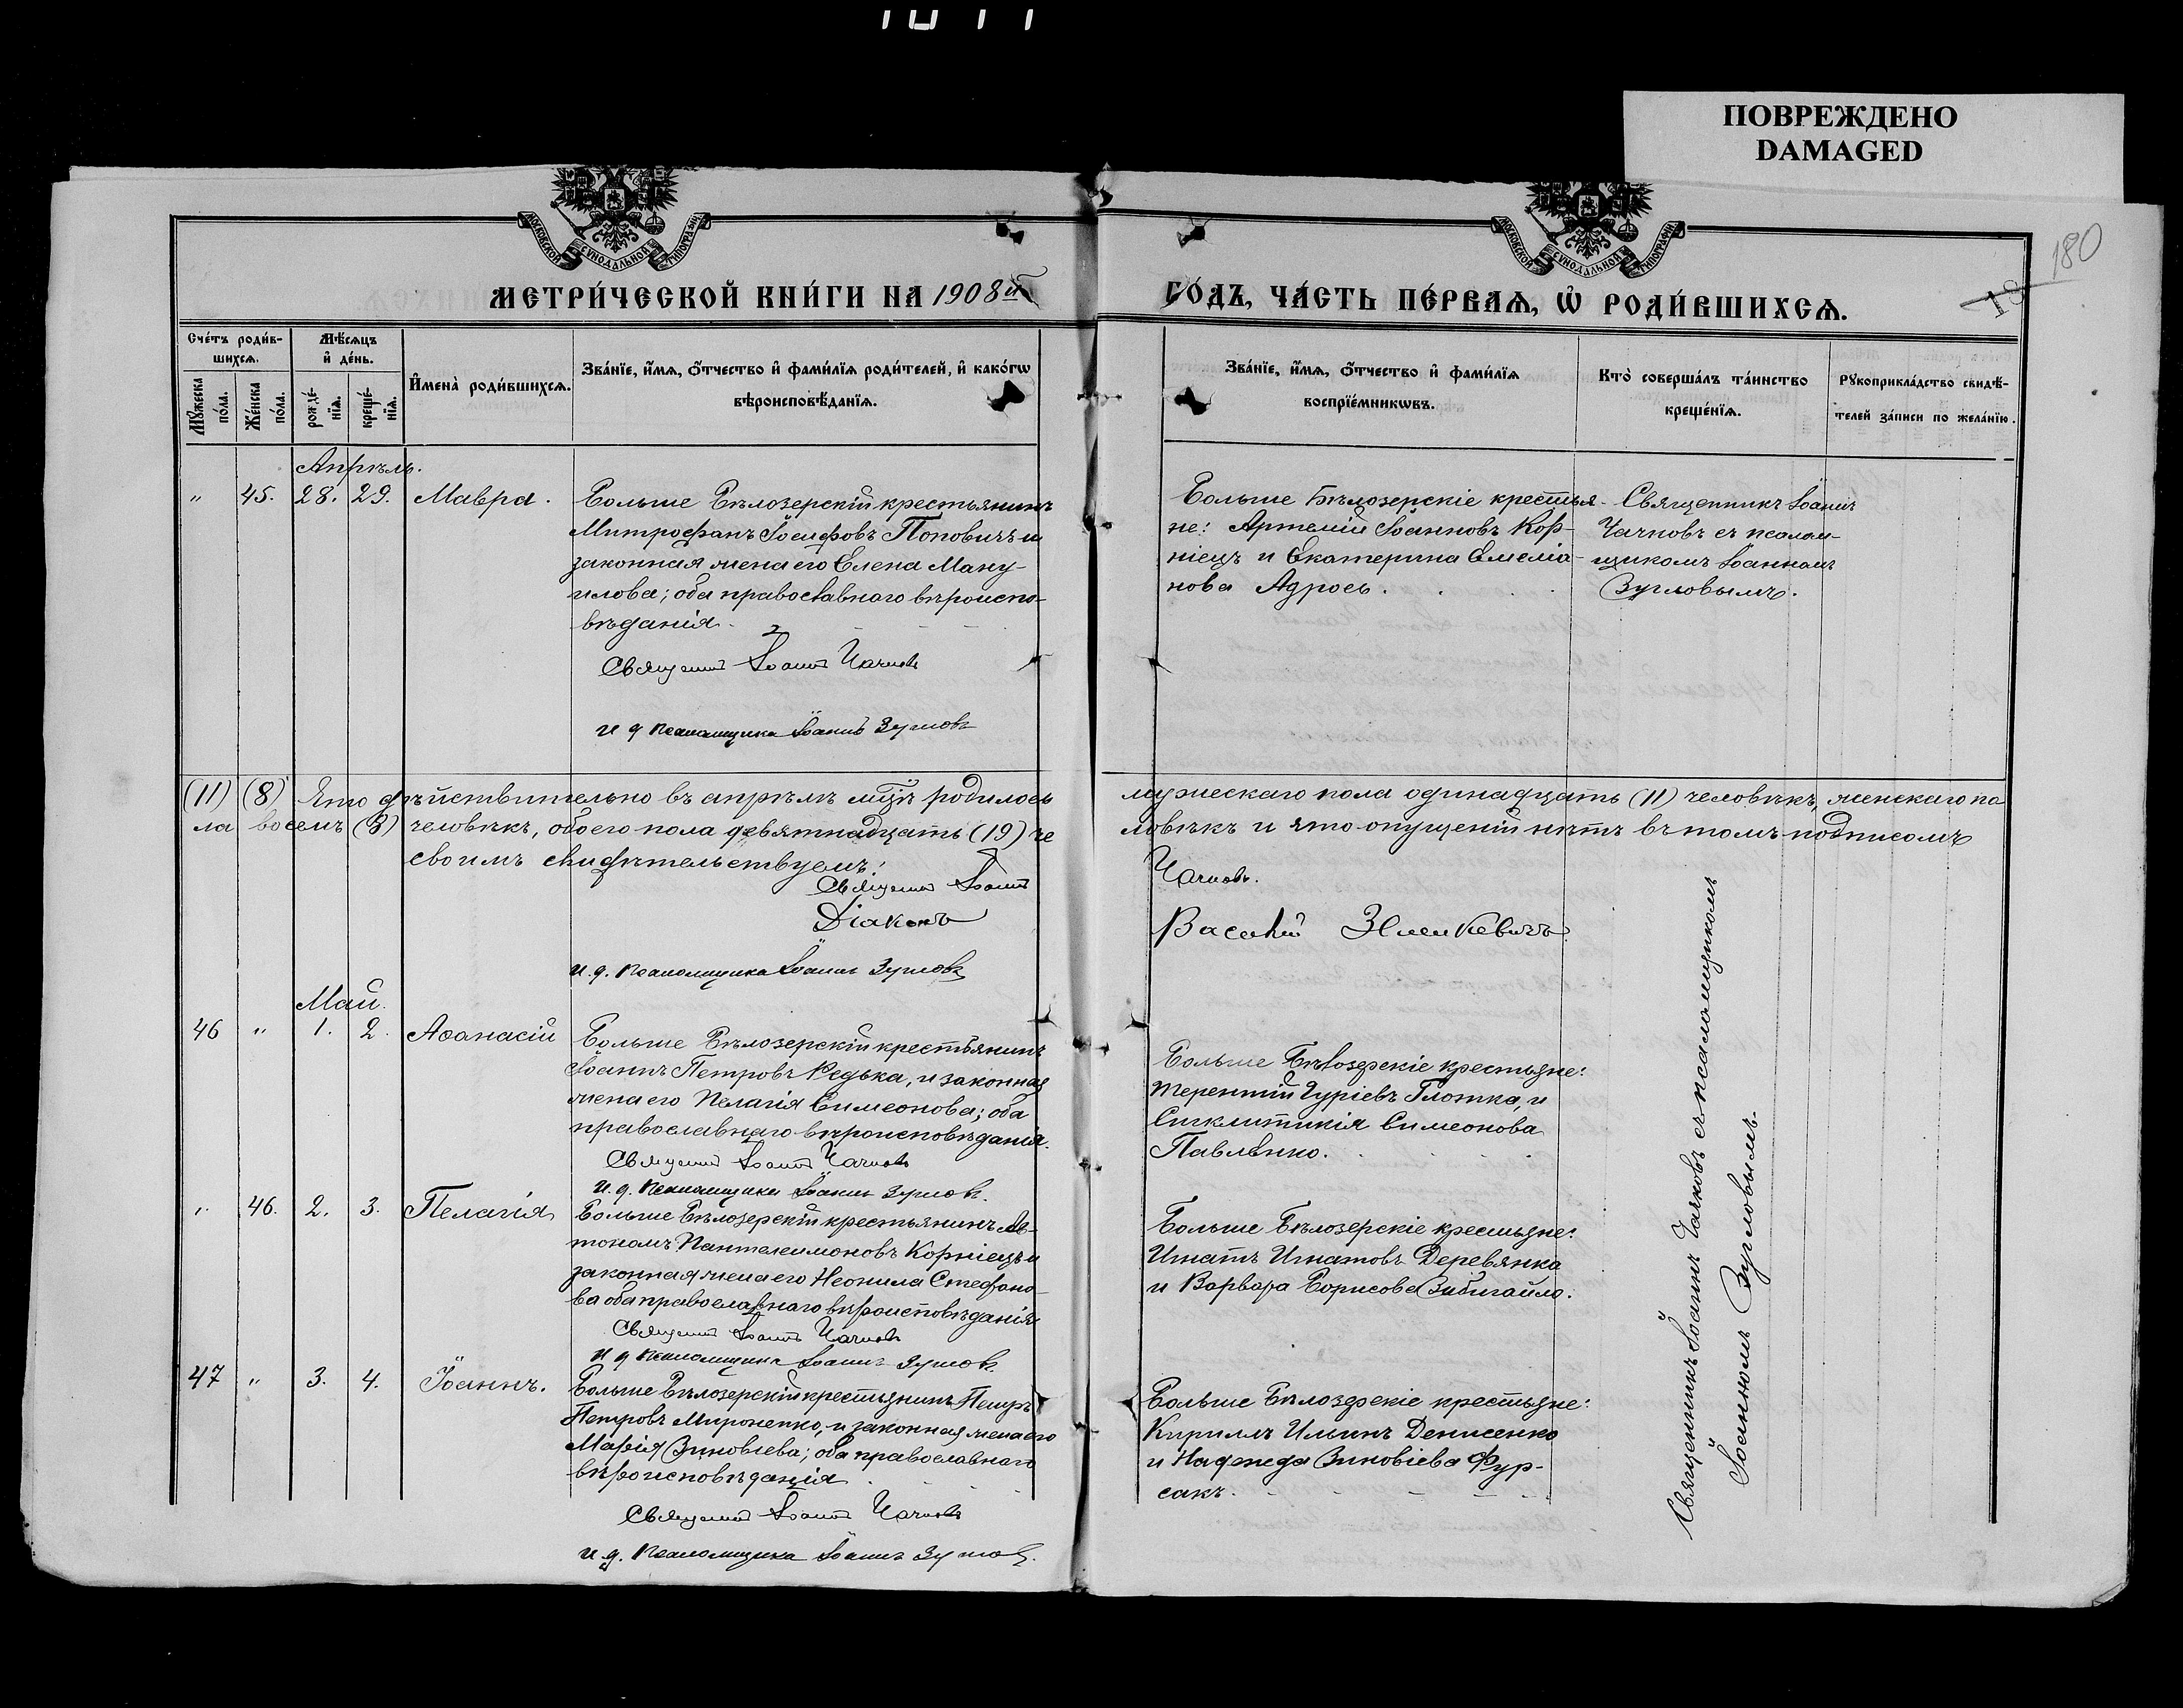 ПОВРЕЖДЕНО
DAMAGED
180
МОСКОВСКОЙ СѴНОДАЛЬНОЙ ТИПОГРАФІИ
МОСКОВСКОЙ СѴНОДАЛЬНОЙ ТИПОГРАФІИ
МЕТРИ́ЧЕСКОЙ КНИ́ГИ НА 1908й
ГО́ДЪ, ЧА́СТЬ ПЕ́РВАѦ, Ѡ҆ РОДИ́ВШИХСѦ.
Сче́тъ роди́в-
шихсѧ.
Мꙋ́жеска по́ла.
Же́нска по́ла.
Мѣ́сѧцъ
и҆ де́нь.
рожде́-
нїѧ.
креще́-
нїѧ.
И҆мена̀ роди́вшихсѧ.
Зва́нїе, и҆́мѧ, ѻ҆́тчество и҆ фами́лїѧ роди́телей, и҆ како́гѡ
вѣроисповѣ́данїѧ.
Зва́нїе, и҆́мѧ, ѻ҆́тчество и҆ фами́лїѧ
воспрїе́мникѡвъ.
Кто̀ соверша́лъ та́инство
креще́нїѧ.
Рꙋкоприкла́дство свидѣ́-
телей за́писи по жела́нїю.
Апрѣль.
" 45. 28. 29. Мавра.
Больше Бѣлозерскій крестьянинъ
Митрофанъ Іосифовъ Поповичъ и
законная жена его Елена Ману-
илова; оба православнаго вѣроиспо-
вѣданія.
Священникъ Іоаннъ Чачковъ
и д псаломщика Іоаннъ Зугловъ
Больше Бѣлозерскіе крестья-
не: Артемій Іоанновъ Кор-
ніецъ и Екатерина Емеліа-
нова Адрось.
Священникъ Іоаннъ
Чачковъ съ псалом-
щикомъ Іоанномъ
Зугловымъ.
(11) (8) Что дѣйствительно въ апрѣлѣ мцѣ родилось мужескаго пола одинадцать (11) человѣкъ, женскаго по
ла восемъ (8) человѣкъ, обоего пола девятнадцать (19) че ловѣкъ и что опущеній нѣтъ въ томъ подписомъ
своимъ свидѣтельствуемъ:
Священникъ Іоаннъ Чачковъ.
Діаконъ Василій
и. д. псаломщика Іоаннъ Зугловъ
Май.
46 " 1. 2. Аѳанасій
Больше Бѣлозерскій крестьянинъ
Іоаннъ Петровъ Редька, и законная
жена его Пелагія Симеонова; оба
православнаго вѣроисповѣданія.
Священникъ Іоаннъ Чачковъ
и. д. псаломщика Іоаннъ Зугловъ.
Больше Бѣлозерскіе крестьяне:
Терентій Гуріевъ Глотка, и
Синклитикія Симеонова
Павленко.
" 46. 2. 3. Пелагія
Больше Бѣлозерскій крестьянинъ Ав-
тономъ Пантелеимоновъ Корніецъ и
законная жена его Неонила Стефано-
ва оба православнаго вѣроисповѣданія
Священникъ Іоаннъ Чачковъ
и д псаломщика Іоаннъ Зугловъ
Больше Бѣлозерскіе крестьяне:
Игнатъ Игнатовъ Деревянка
и Варвара Борисова Зибигайло.
47 " 3. 4. Іоаннъ.
Больше Бѣлозерскій крестьянинъ Петръ
Петровъ Мироненко, и законная жена его
Марія Зиновіева; оба православнаго
вѣроисповѣданія
Священникъ Іоаннъ Чачковъ
и. д. псаломщика Іоаннъ Зугловъ.
Больше Бѣлозерскіе крестьяне:
Кириллъ Ильинъ Денисенко
и Надежда Зиновіева Фур-
сакъ.
Священникъ Іоаннъ Чачковъ съ псаломщикомъ
Іоанномъ Зугловымъ.